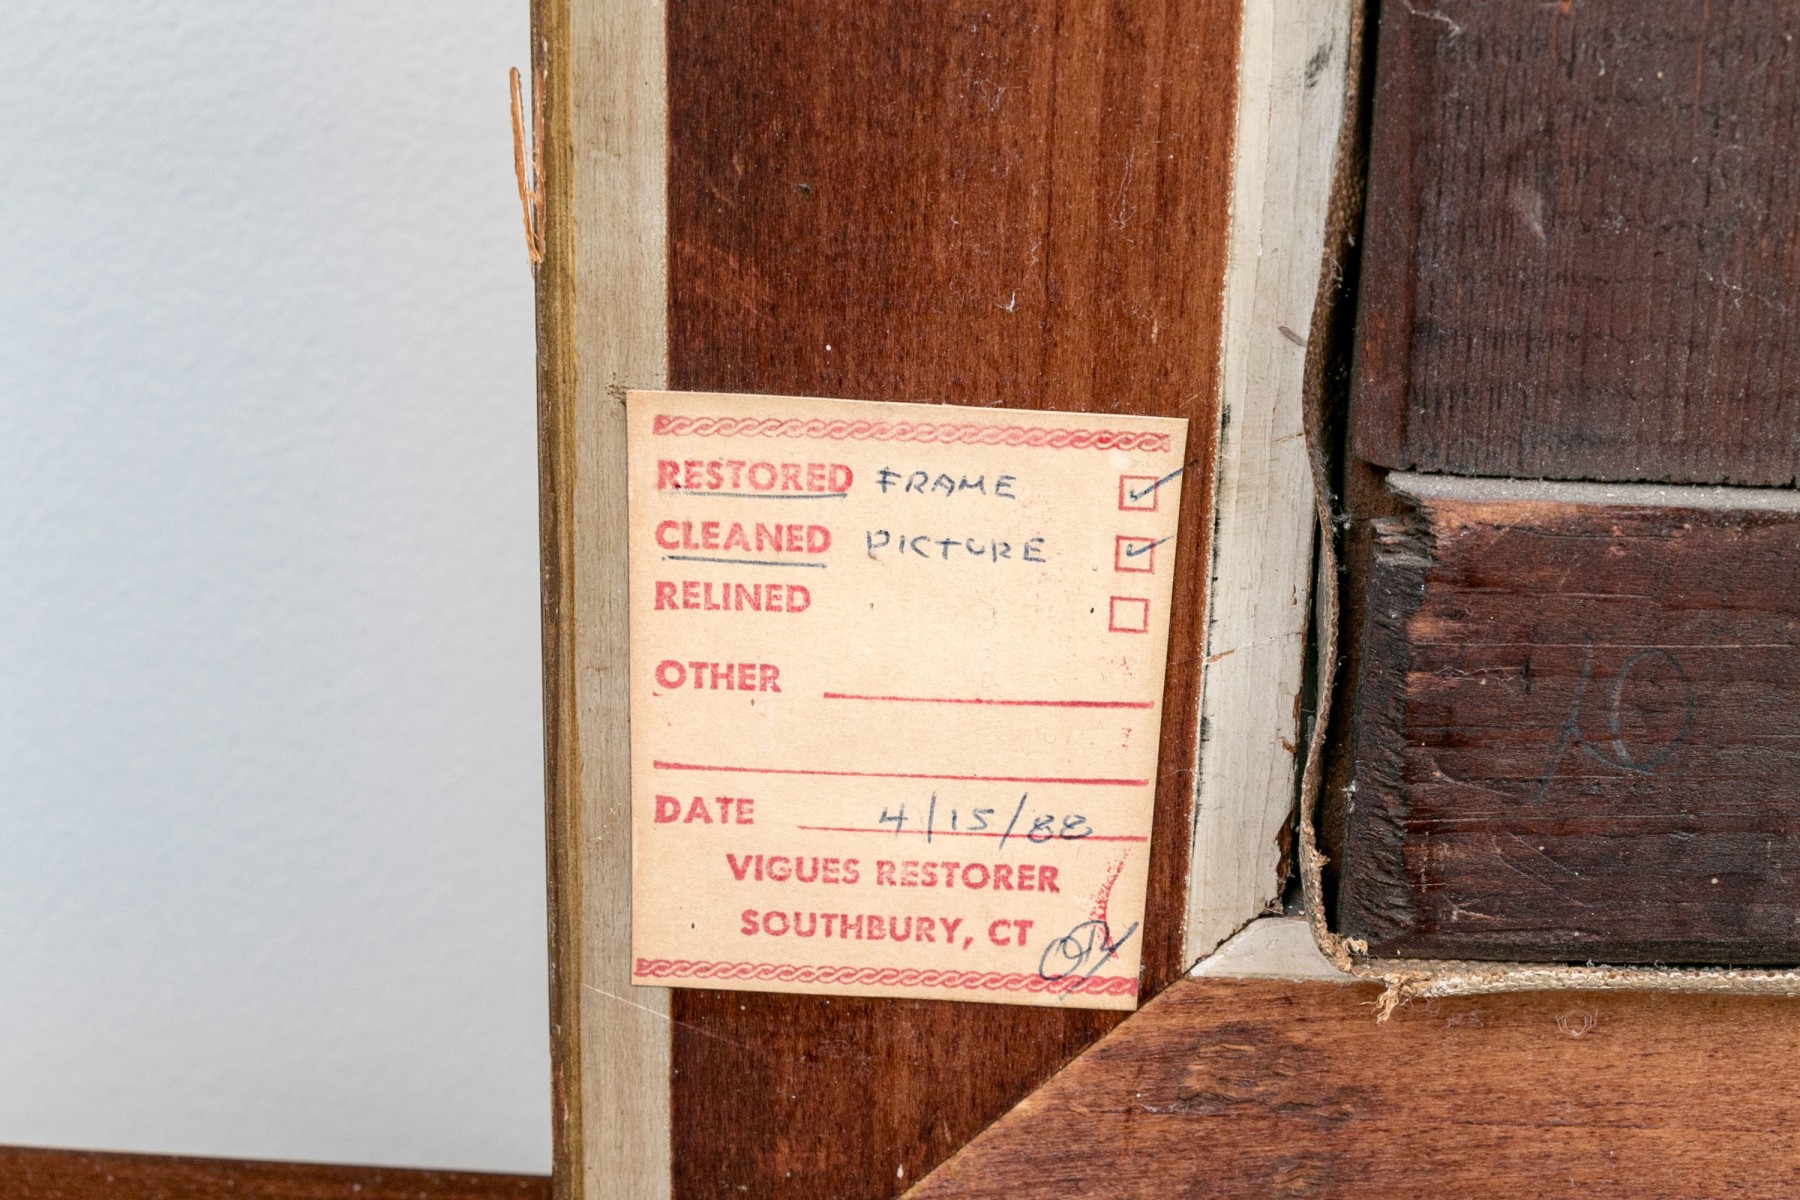 RESTORED FRAME
CLEANED PICTURE
RELINED
OTHER
DATE 4/15/88
VIGUES RESTORER
SOUTHBURY, CT